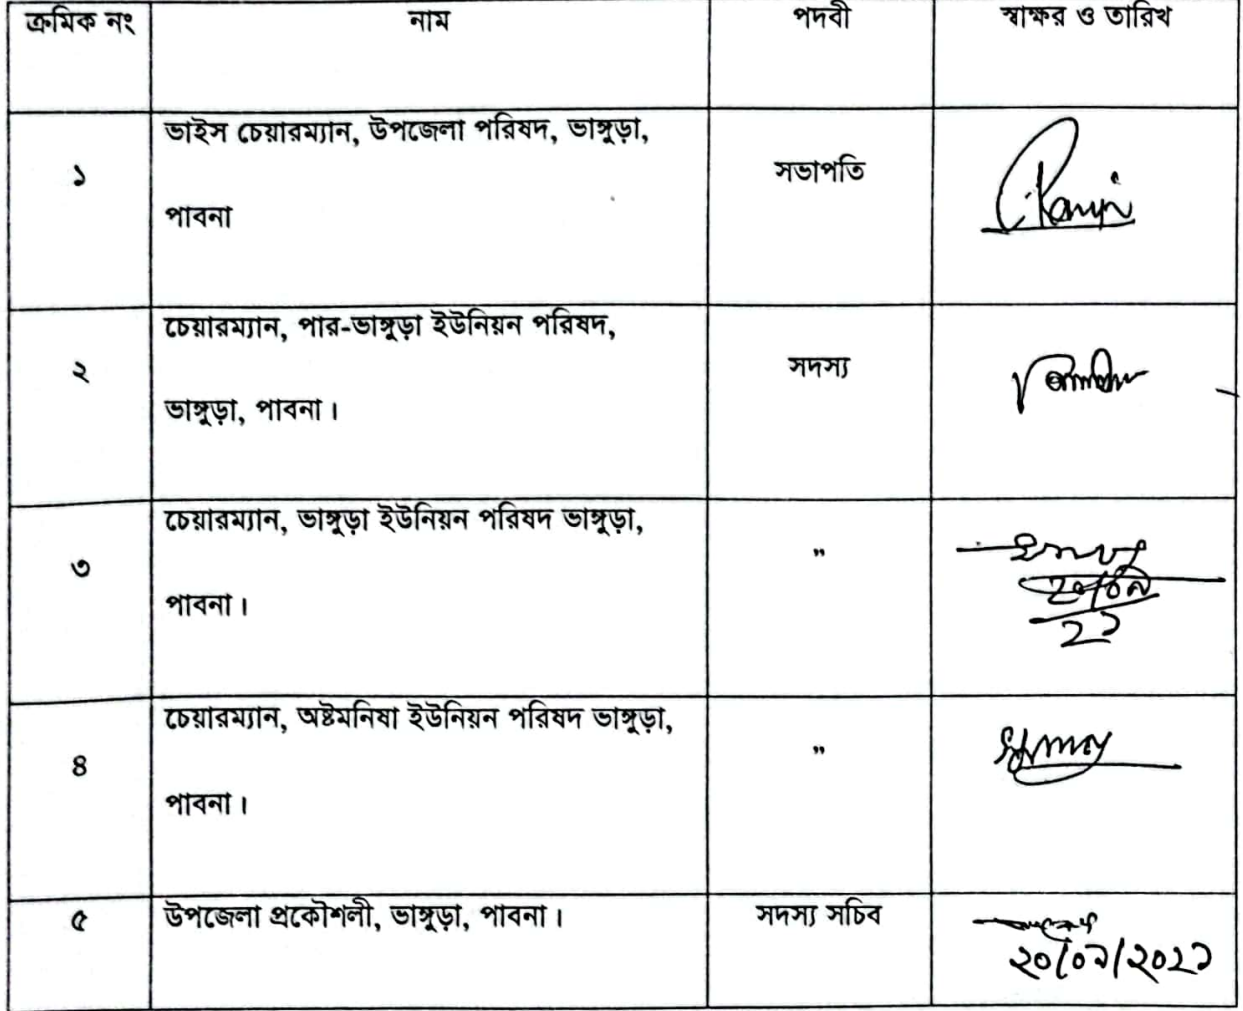 ক্রমিক নং নাম পদবী স্বাক্ষর ও তারিখ
ভাইস চেয়ারম্যান, উপজেলা পরিষদ, ভাঙ্গুড়া,
১ সভাপতি
পাবনা
চেয়ারম্যান, পার-ভাঙ্গুড়া ইউনিয়ন পরিষদ,
২ সদস্য
ভাঙ্গুড়া, পাবনা।
চেয়ারম্যান, ভাঙ্গুড়া ইউনিয়ন পরিষদ ভাঙ্গুড়া,
৩ "
পাবনা।
চেয়ারম্যান, অষ্টমনিষা ইউনিয়ন পরিষদ ভাঙ্গুড়া,
৪ "
পাবনা।
৫ উপজেলা প্রকৌশলী, ভাঙ্গুড়া, পাবনা। সদস্য সচিব
২০/০৯/২০২১